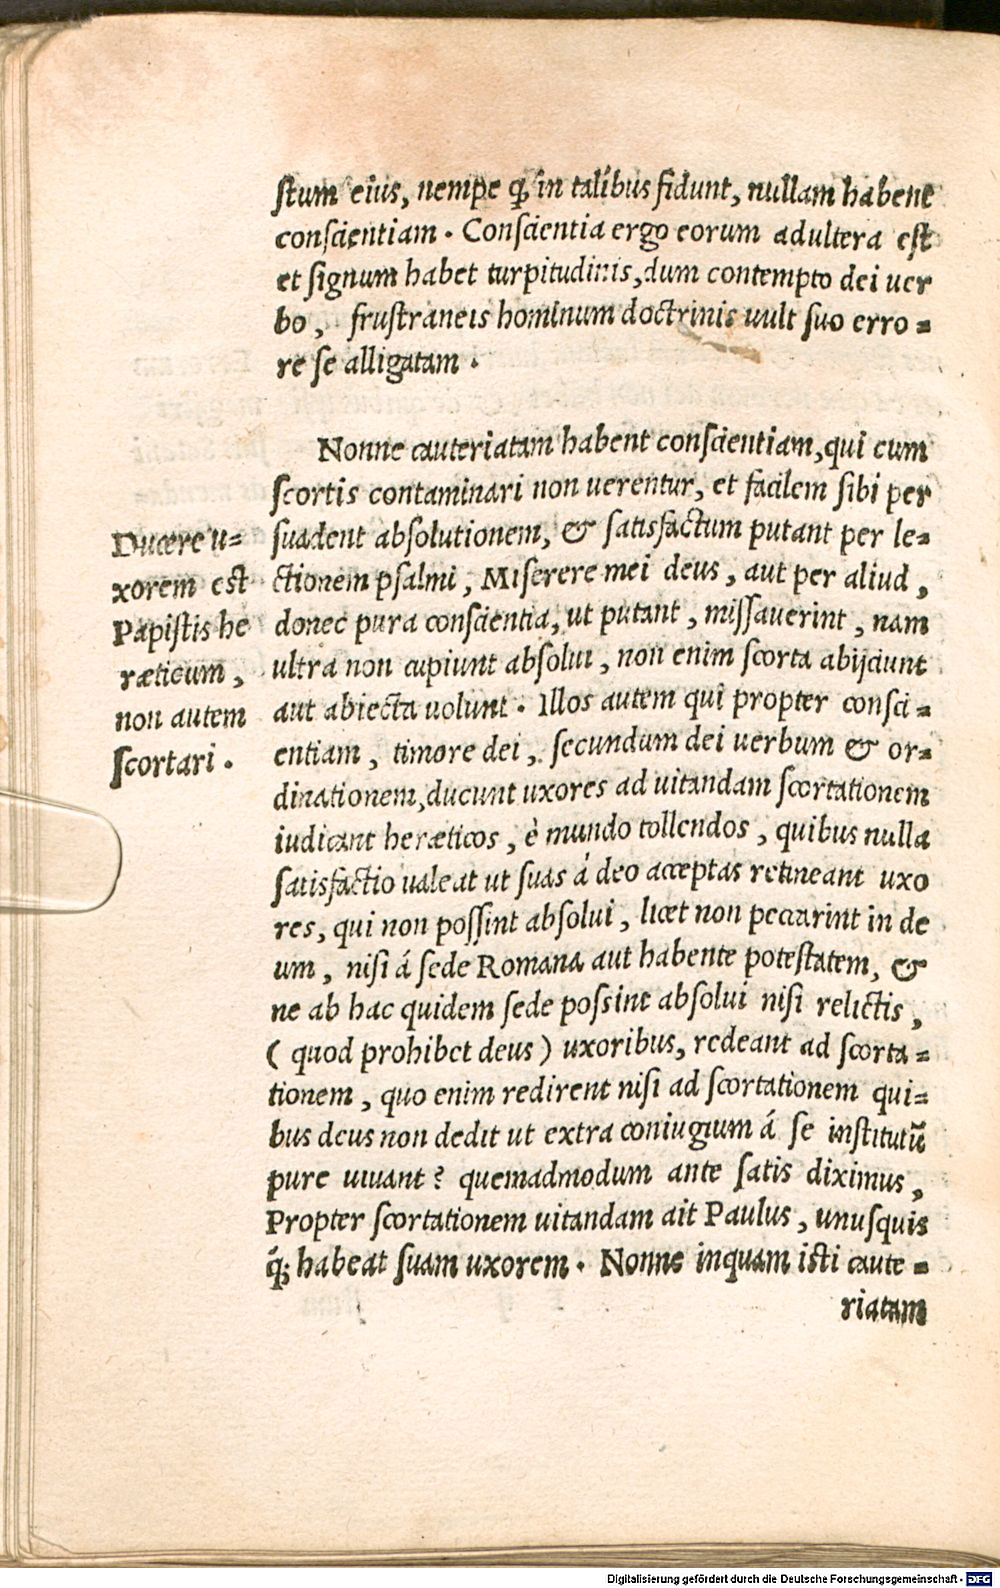 stum eius, nempe q̃ in talibus fidunt, nullam habent
conscientiam. Conscientia ergo eorum adultera est
et signum habet turpitudinis, dum contempto dei uer
bo, frustraneis hominum doctrinis uult suo erro=
re se alligatam.
Nonne cauteriatam habent conscientiam, qui cum
scortis contaminari non uerentur, et facilem sibi per
suadent absolutionem, & satisfactum putant per le=
ctionem psalmi, Miserere mei deus, aut per aliud,
donec pura conscientia, ut putant, missauerint, nam
ultra non cupiunt absolui, non enim scorta abijciunt
aut abiecta uolunt. Illos autem qui propter consci=
entiam, timore dei, secundum dei uerbum & or=
dinationem, ducunt uxores ad uitandam scortationem
iudicant heræticos, è mundo tollendos, quibus nulla
satisfactio ualeat ut suas á deo acceptas retineant uxo
res, qui non possint absolui, licet non peccarint in de
um, nisi á sede Romana aut habente potestatem, &
ne ab hac quidem sede possint absolui nisi relictis,
( quod prohibet deus ) uxoribus, redeant ad scorta=
tionem, quo enim redirent nisi ad scortationem qui=
bus deus non dedit ut extra coniugium á se institutũ
pure uiuant? quemadmodum ante satis diximus,
Propter scortationem uitandam ait Paulus, unusquis
q́; habeat suam uxorem. Nonne inquam isti caute=
riatam
Ducere u=
xorem est
Papistis he
ræticum,
non autem
scortari.
Digitalisierung gefördert durch die Deutsche Forschungsgemeinschaft - DFG